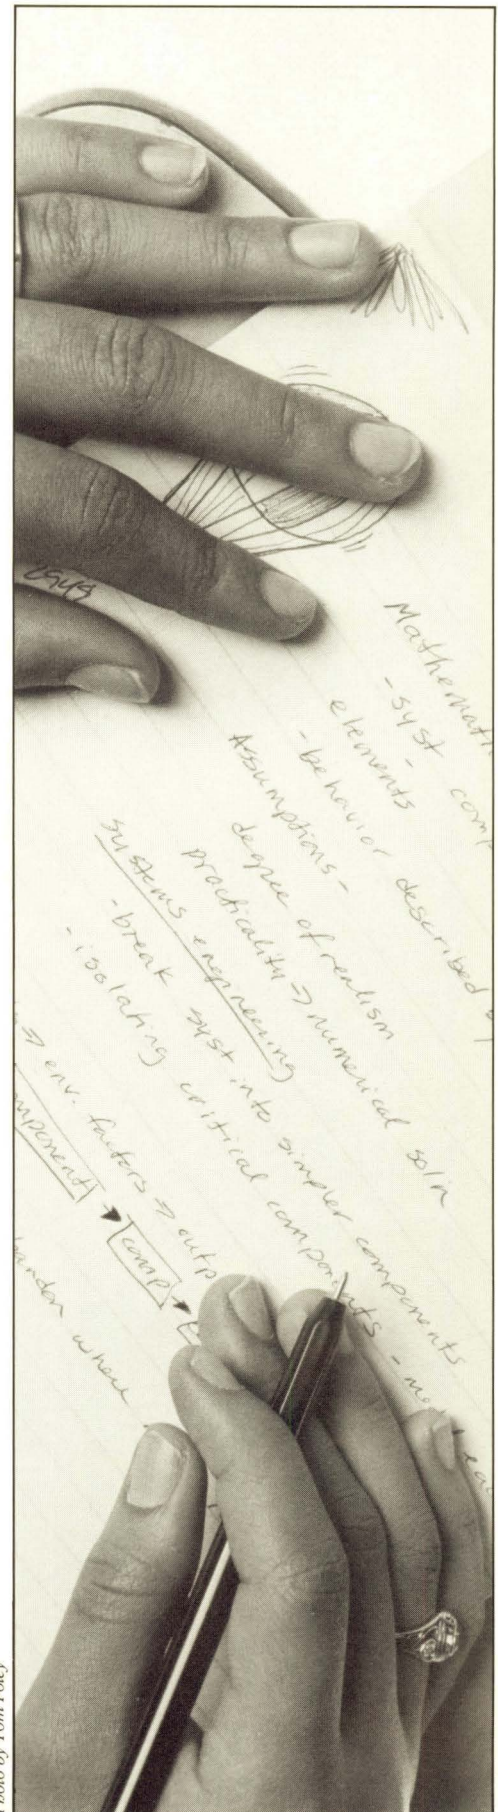 - syst comp
elements
- behavior described by
Assumptions -
degree of realism
practicality => numerical soln
systems engineering
- break syst into simpler components
- isolating critical components -
=> env. factors => outp
comp
where
Photo by Tom Foley